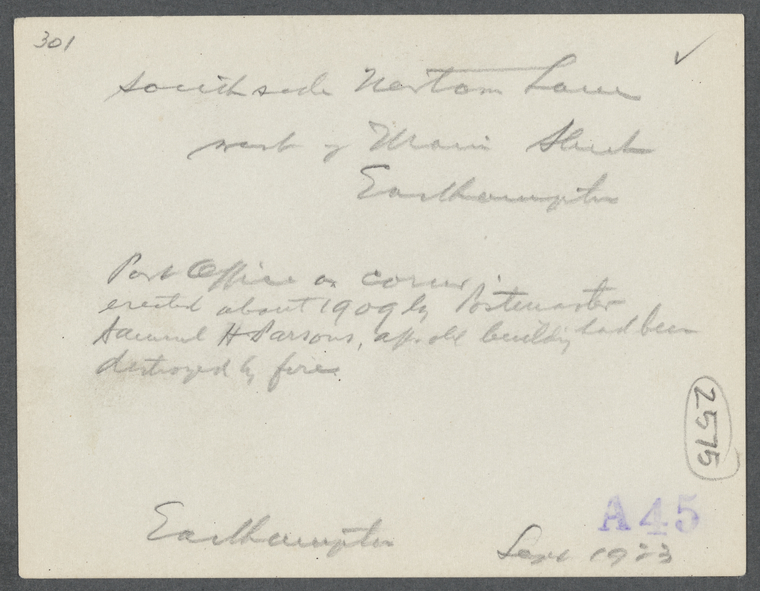 301
✓
south side Newtown Lane
west of Main Street
Easthampton
Post Office on corner.
erected about 1909 by Postmaster
Samuel H Parsons, aft. old building had been
destroyed by fire
2575
A45
Easthampton
Sept 1923